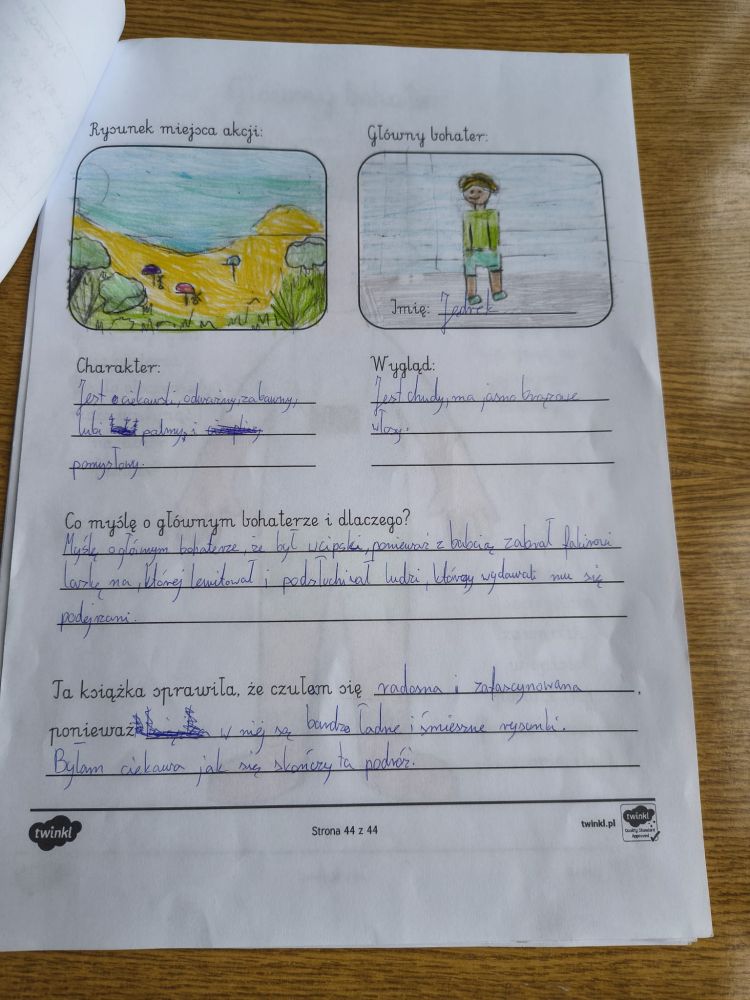 Rysunek miejsca akcji:
Główny bohater:
Imię: Jędrek
Charakter:
Jest ciekawski, odważny, zabawny,
lubi palmy, i
pomysłowy.
Wygląd:
Jest chudy, ma jasno brązowe
włosy.
Co myślę o głównym bohaterze i dlaczego?
Myślę o głównym bohaterze, że był ucipski, ponieważ z babcią zabrał fakirowi
laskę na, której lewitował i podsłuchiwał ludzi, którzy wydawali mu się
podejrzani.
Ta książka sprawiła, że czułem się radosna i zafascynowana,
ponieważ w niej są bardzo ładne i śmieszne rysunki.
Byłam ciekawa jak się skończy ta podróż.
twinkl
Strona 44 z 44
twinkl.pl
twinkl
Quality Standard
Approved